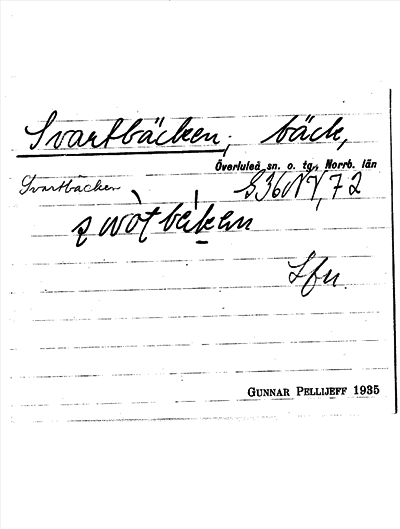 Svartbäcken, bäck,
Överluleå sn. o. tg., Norrb. län
Svartbäcken
G36NV,72
Sfu.
GUNNAR PELLIJEFF 1935